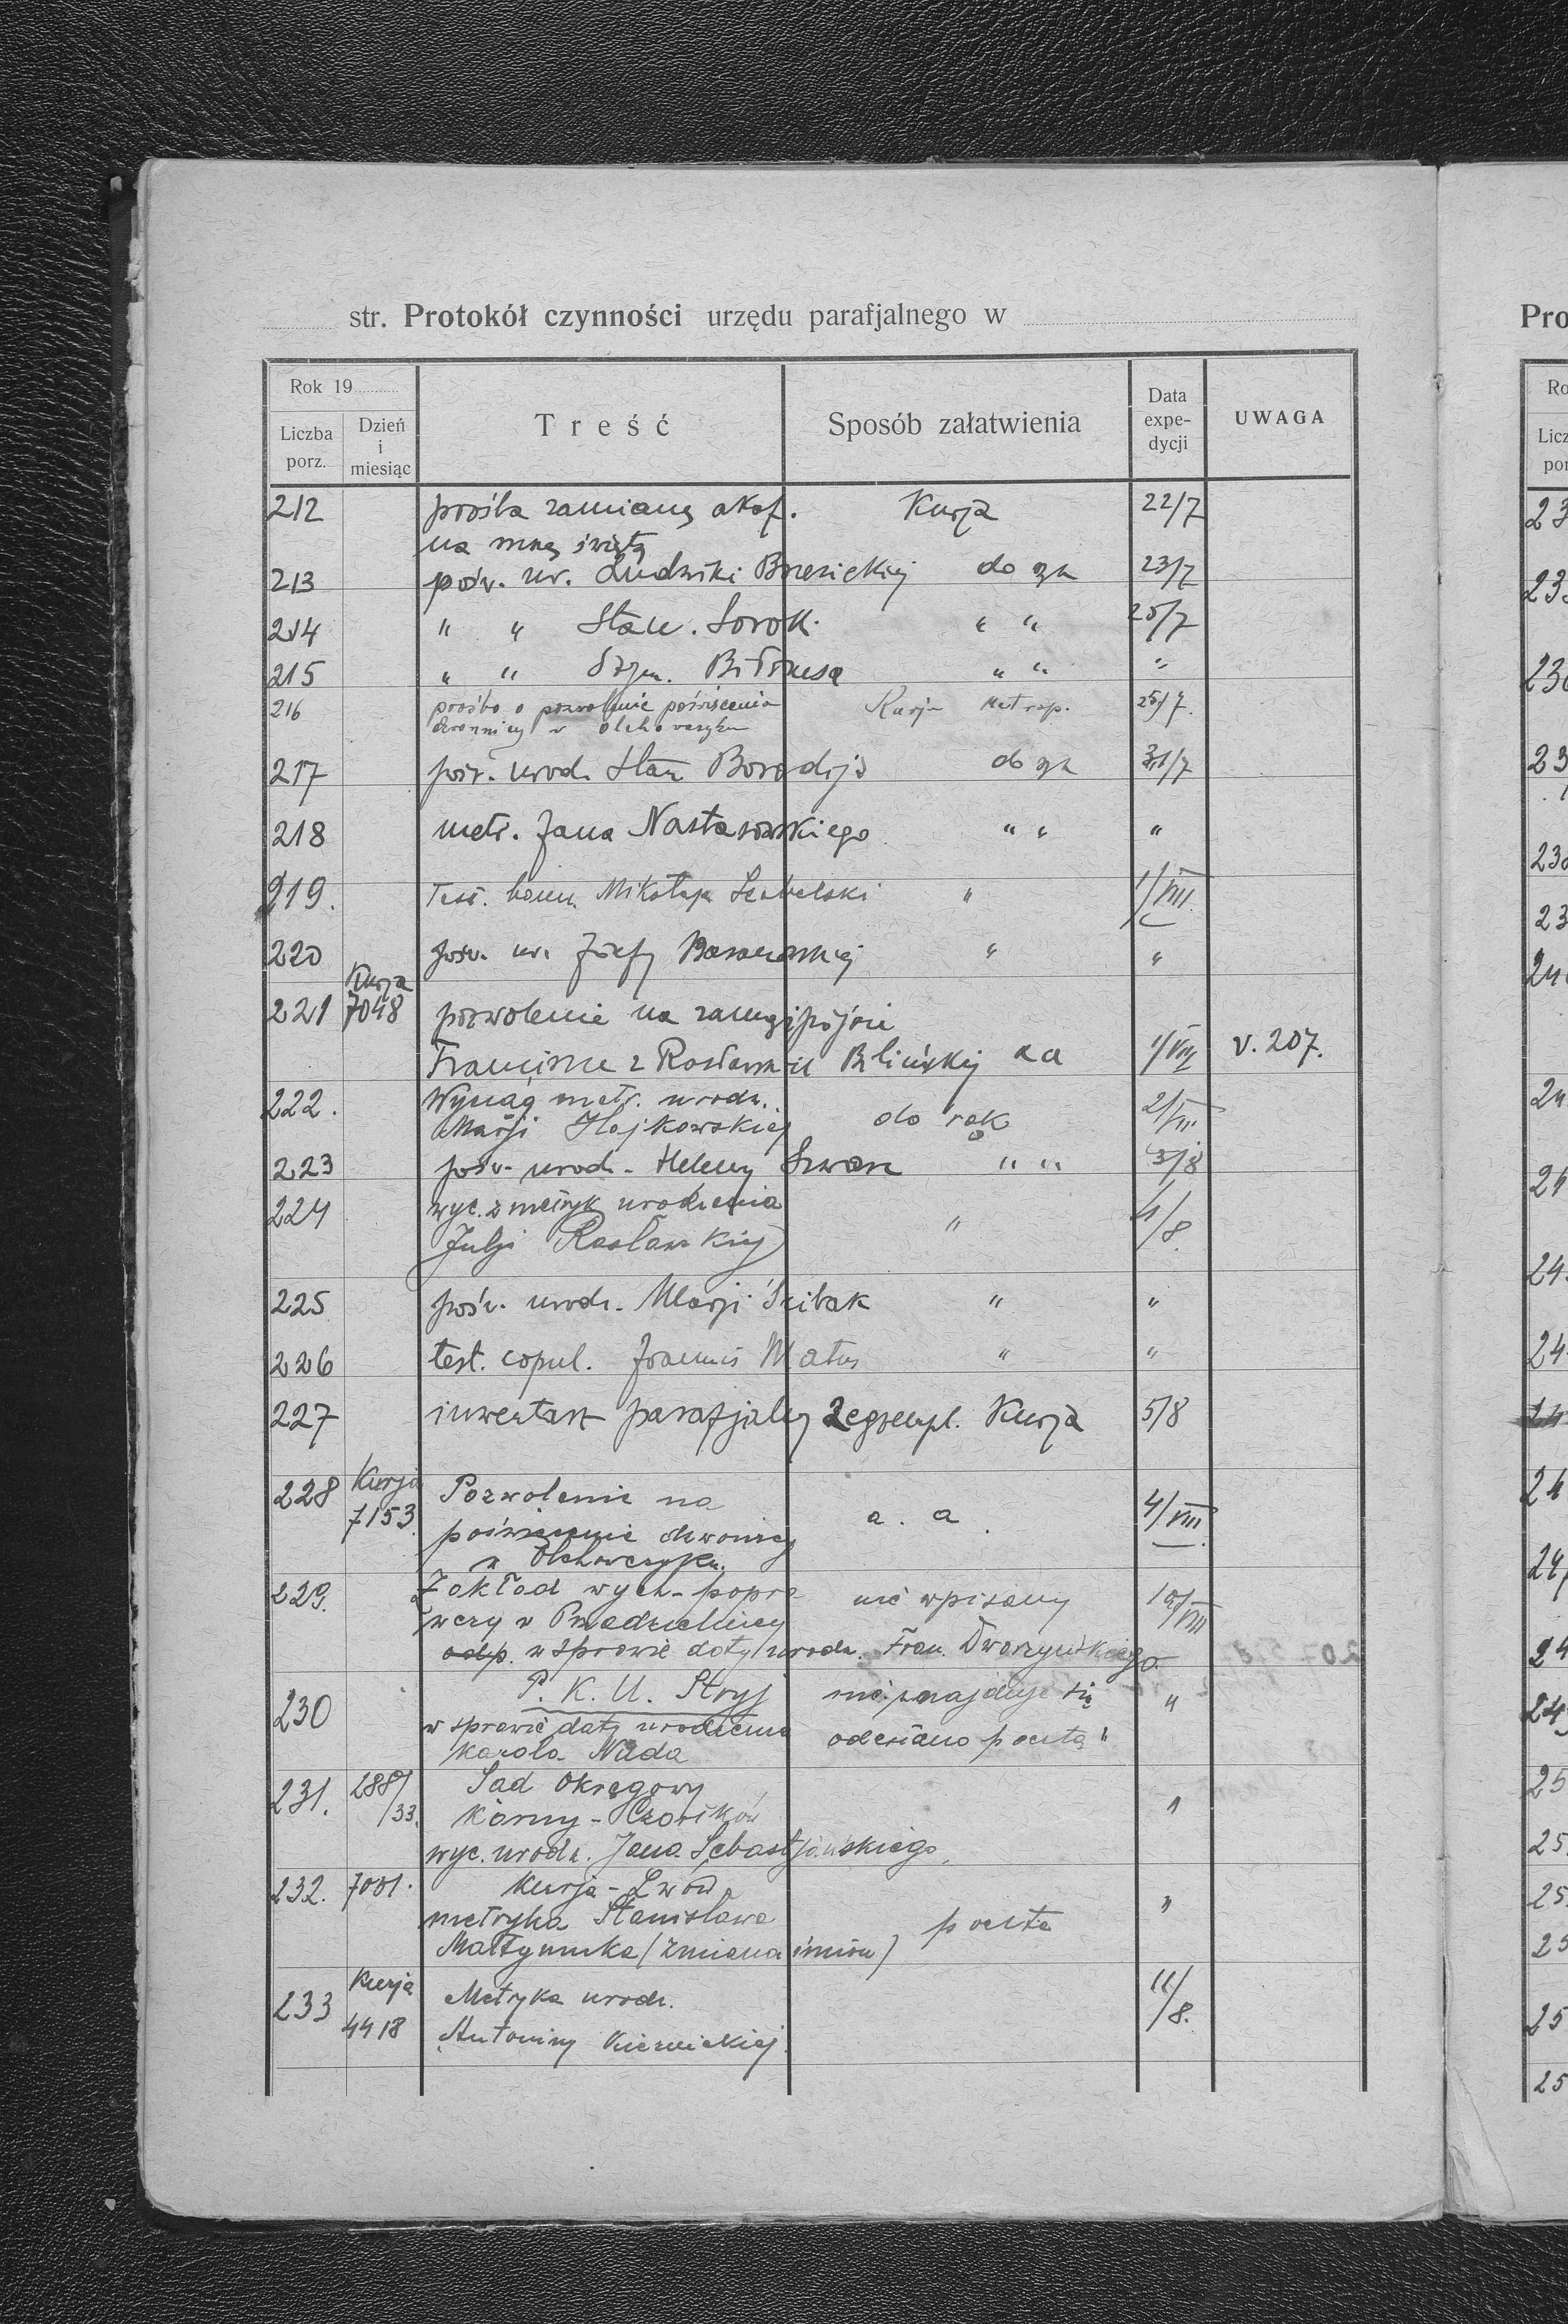 str. Protokół czynności urzędu parafjalnego w
Rok 19
Liczba porz.
Dzień i miesiąc
Treść
Sposób załatwienia
Data expe-dycji
UWAGA
212 prośba zamianę Kurja 22/7
na mszę świętą
213 pośw. ur. Ludwiki do rąk 23/7
214 " " Stan. Sorok. " " 25/7
215 " " Szym. " " "
216 prośba o pozwolenie poświęcenia Kurja Metrop. 25/7.
dzwonnicy w Olchowczyku
217 pośw. urodz. Stan Borodija do rąk 31/7
218 metr. Jana Nastasowskiego " " "
219. Test. Mikołaja " 1/VIII.
220 pośw. ur. Józefy " "
221 Kurja 7048 pozwolenie na zamążpójście
Franciszce z Rosław Blińskiej aa 1/VIII v. 207.
222. Wyciąg metr. urodz. 2/VIII
Marji Hajkowskiej do rąk
223 pośw. urodz. Heleny Szwarc " " 3/8
224 wyc. z metryk urodzenia 4/8.
Julji Rosławskiej "
225 pośw. urodz. Marji Ścibak " "
226 test. copul. Joannis Matus " "
227 inwentarz parafjalny 2 egzempl. Kurja 5/8
228 Kurja 7153. Pozwolenie na a. a. 4/VIII.
poświęcenie dzwonicy
w Olchowczyku.
229. Zakład wych-popra nie wpisany 10/VIII
wczy w Przedzielnicy
odp. w sprawie daty urodz. Fran. Dworzyńskiego.
230 P. K. U. Stryj nie znajduje się "
w sprawie daty urodzenia odesłano pocztą "
Karola Nuda
231. 288/33. Sąd Okręgowy "
Karny - Czortków
wyc. urodz. Jana Sebastjańskiego.
232. 7001. Kurja - Lwów "
metryka Stanisława poczta
Martyniuka (zmiana imion)
233 Kurja 4418 Metryka urodz. 11/8.
Antoniny Kiernickiej.